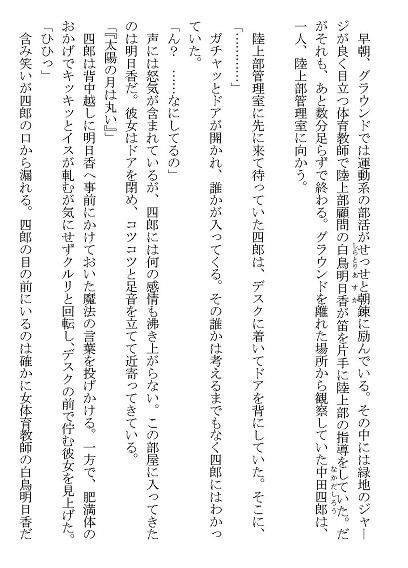 早朝、グラウンドでは運動系の部活がせっせと朝錬に励んでいる。その中には緑地のジャー
ジが良く目立つ体育教師で陸上部顧問の白鳥明日香が笛を片手に陸上部の指導をしていた。だ
がそれも、あと数分足らずで終わる。グラウンドを離れた場所から観察していた中田四郎は、
一人、陸上部管理室に向かう。
「…………」
　陸上部管理室に先に来て待っていた四郎は、デスクに着いてドアを背にしていた。そこに、
ガチャッとドアが開かれ、誰かが入ってくる。その誰かは考えるまでもなく四郎にはわかっ
ていた。
「ん？　……なにしてるの」
　声には怒気が含まれているが、四郎には何の感情も沸き上がらない。この部屋に入ってきた
のは明日香だ。彼女はドアを閉め、コツコツと足音を立てて近寄ってきている。
「『太陽の月は丸い』」
　四郎は背中越しに明日香へ事前にかけておいた魔法の言葉を投げかける。一方で、肥満体の
おかげでキッキッとイスが軋むが気にせずクルリと回転し、デスクの前で佇む彼女を見上げた。
「ひひっ」
　含み笑いが四郎の口から漏れる。四郎の目の前にいるのは確かに女体育教師の白鳥明日香だ